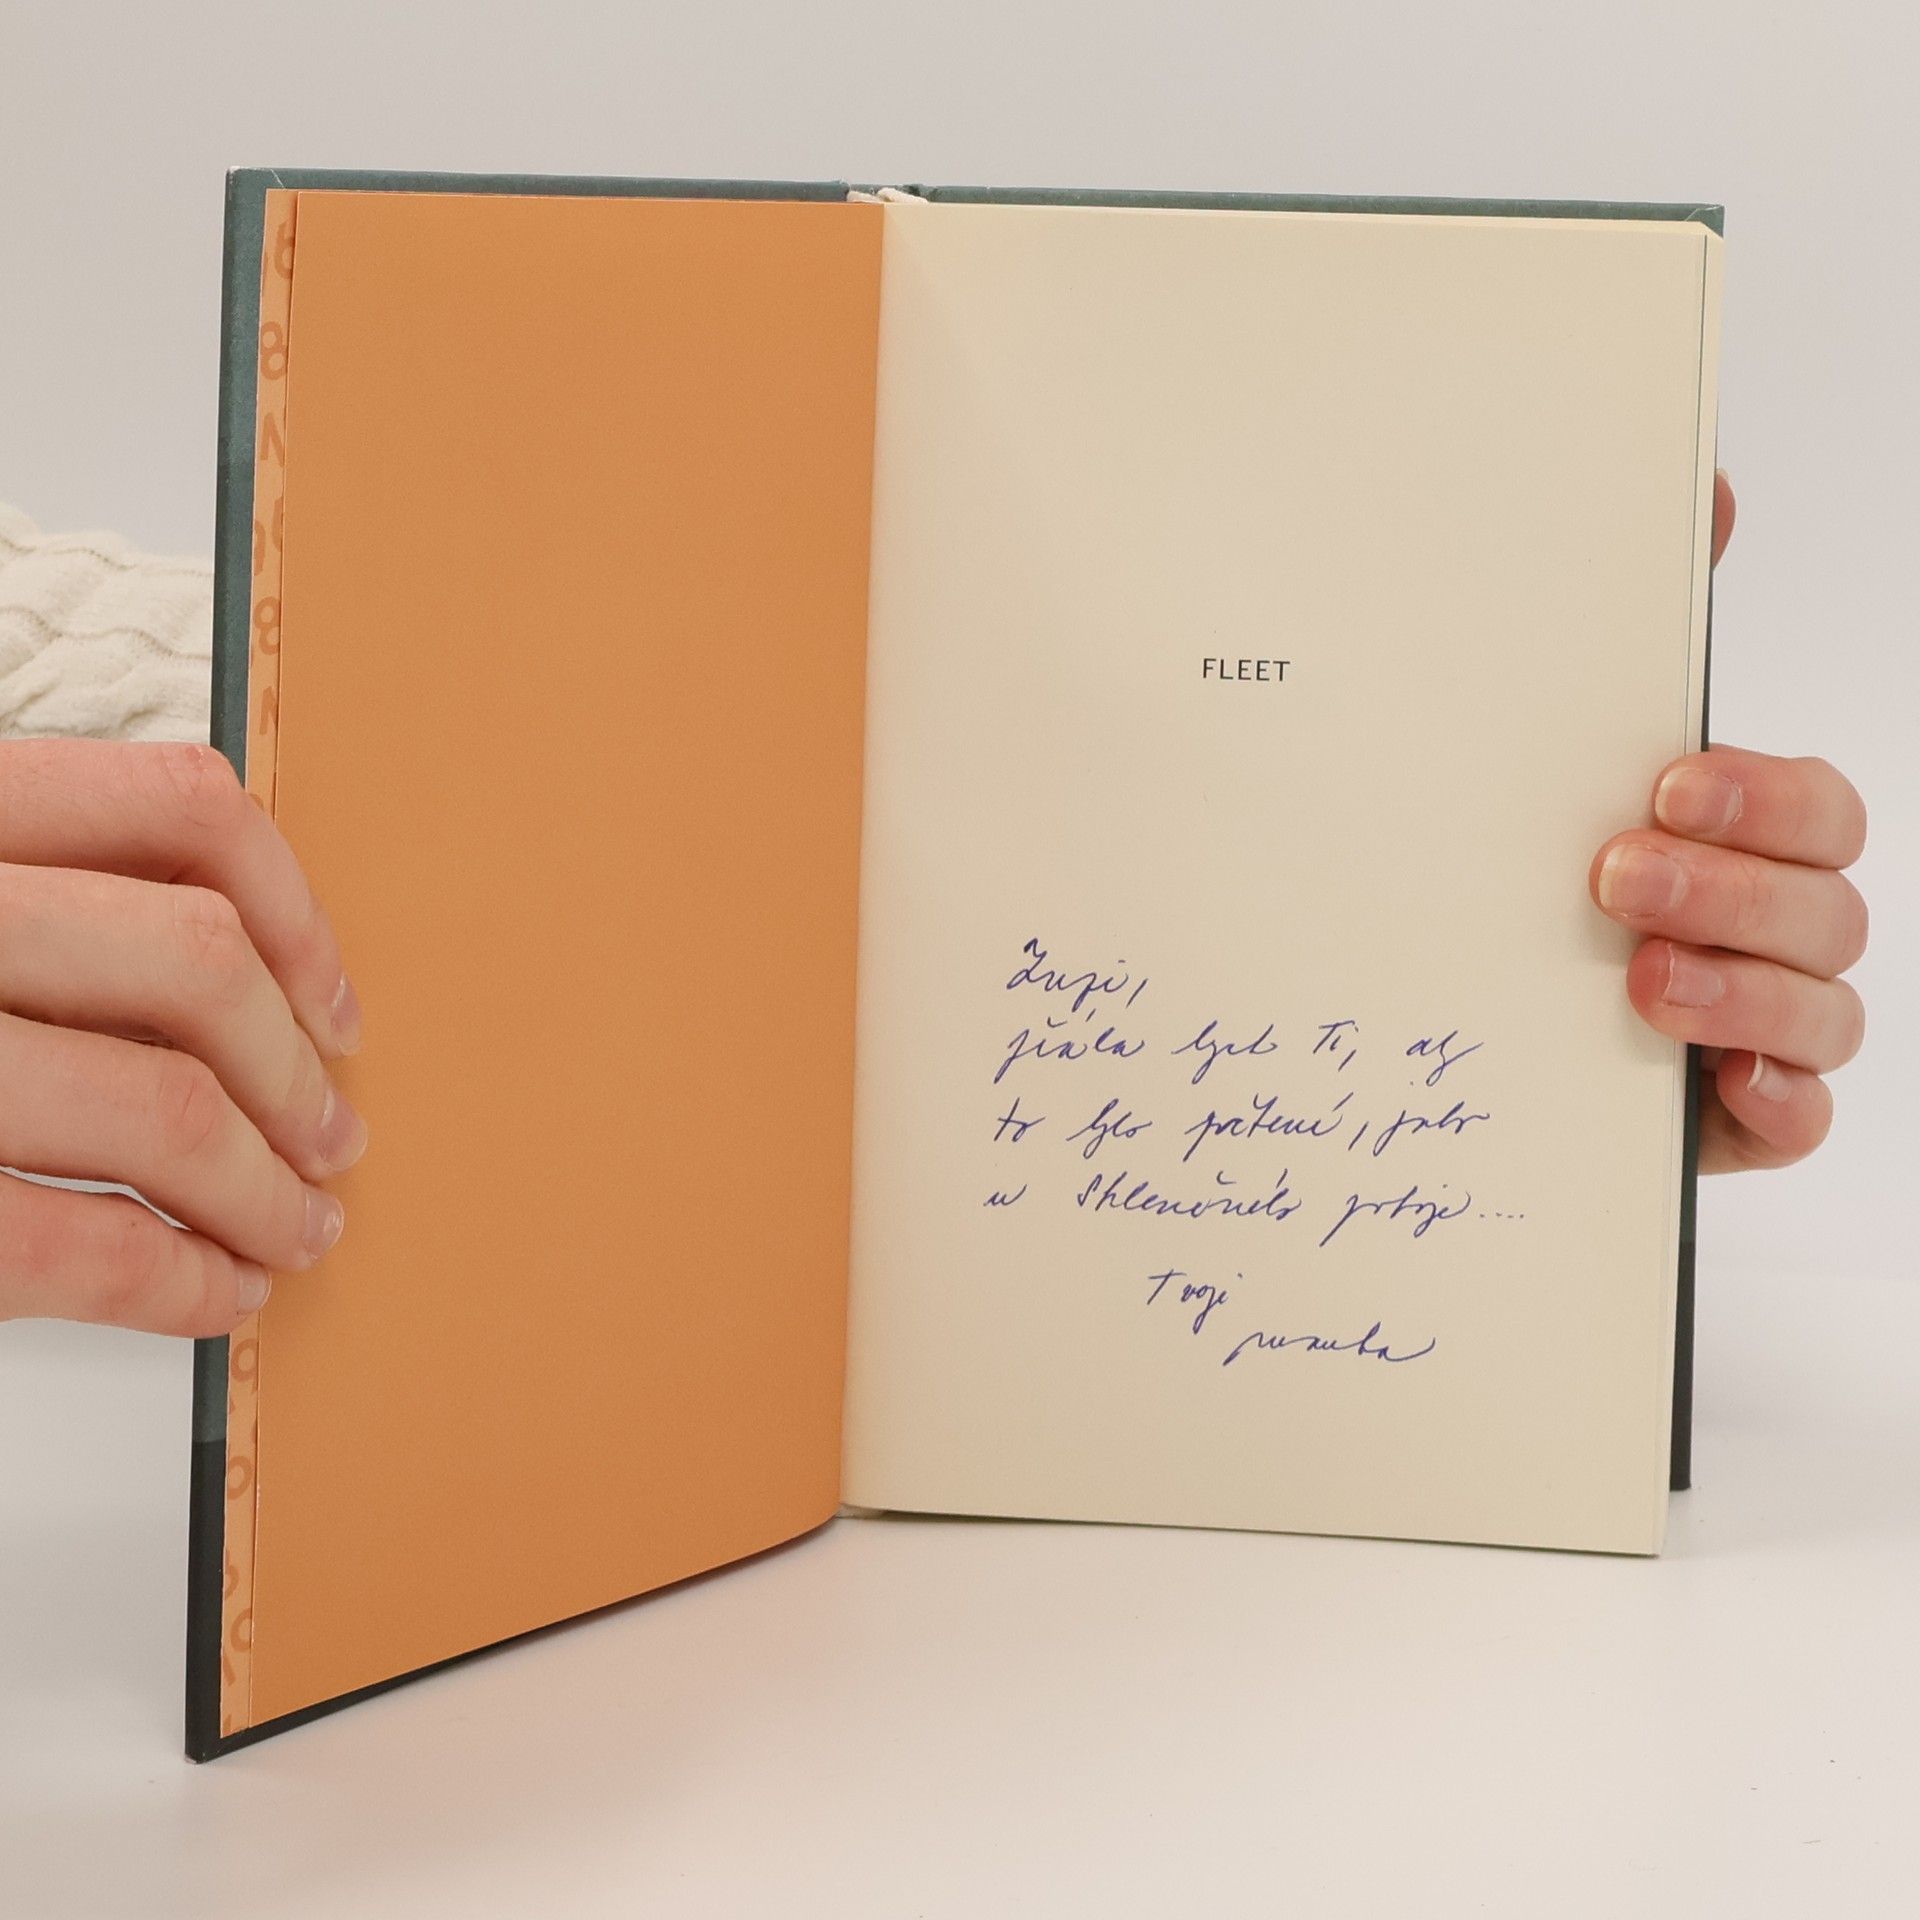 FLEET
Zuzi,
přála bych Ti, ať
to bylo počtení, jako
u Skleněného pokoje....
Tvoji